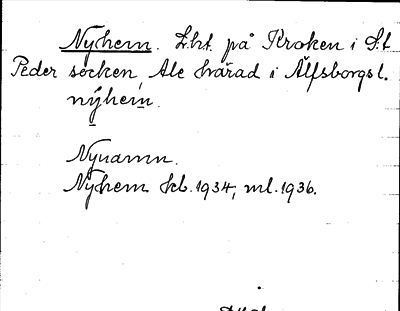 Nyhem. Lht. på Kroken i S:t
Peder socken, Ale härad i Älfsborgs l.
nýhem̲
Nynamn.
Nyhem kb. 1934, ml. 1936.